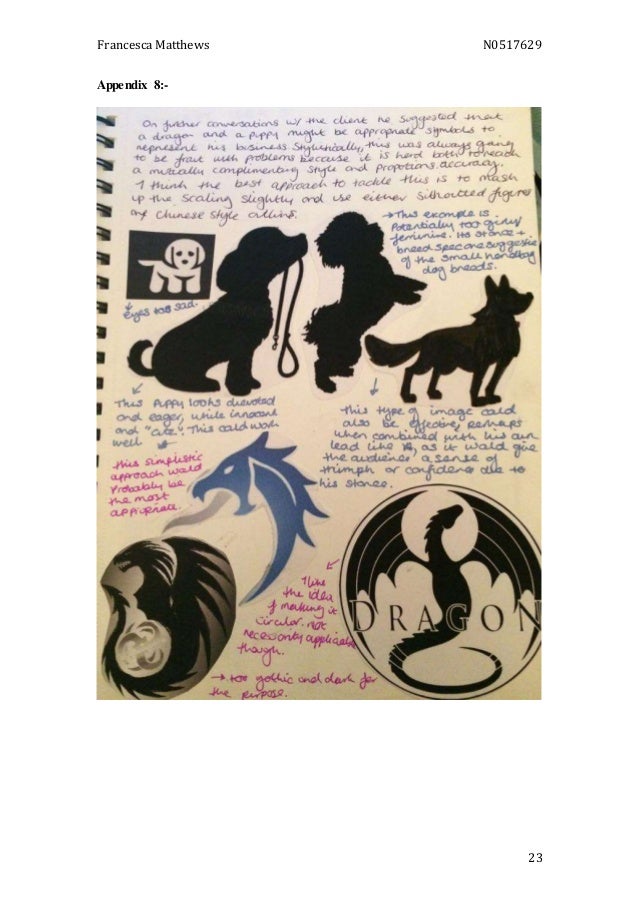 Francesca Matthews N0517629
Appendix 8:-
On further conversations w/ the client he suggested that
a dragon and a puppy might be appropriate symbols to
represent his business. Stylistically, this was always going
to be fraut with problems because it is hard both to reach
a mutially complimentary style and propotions accuracy.
I think the best approach to tackle this is to mash
up the scaling slightly and use either silhouetted figures
or Chinese style outlines.
→ This example is
potentially too girly/
feminine. Its stance +
breed specone suggestive
of the small handbag
dog breads.
eyes too sad.
This puppy looks devoted
and eager, while innocent
and "cute". This could work
well
This type of image could
also be effective, perhaps
when combined with his own
lead like , as it would give
the audience a sense of
triumph or confidence due to
his stance.
this simplistic
approach would
probably be
the most
appropriate.
I like
the idea
of making it
circular. not
necessarily applicable
though.
→ too gothic and dark for
the purpose.
DRAGON
23